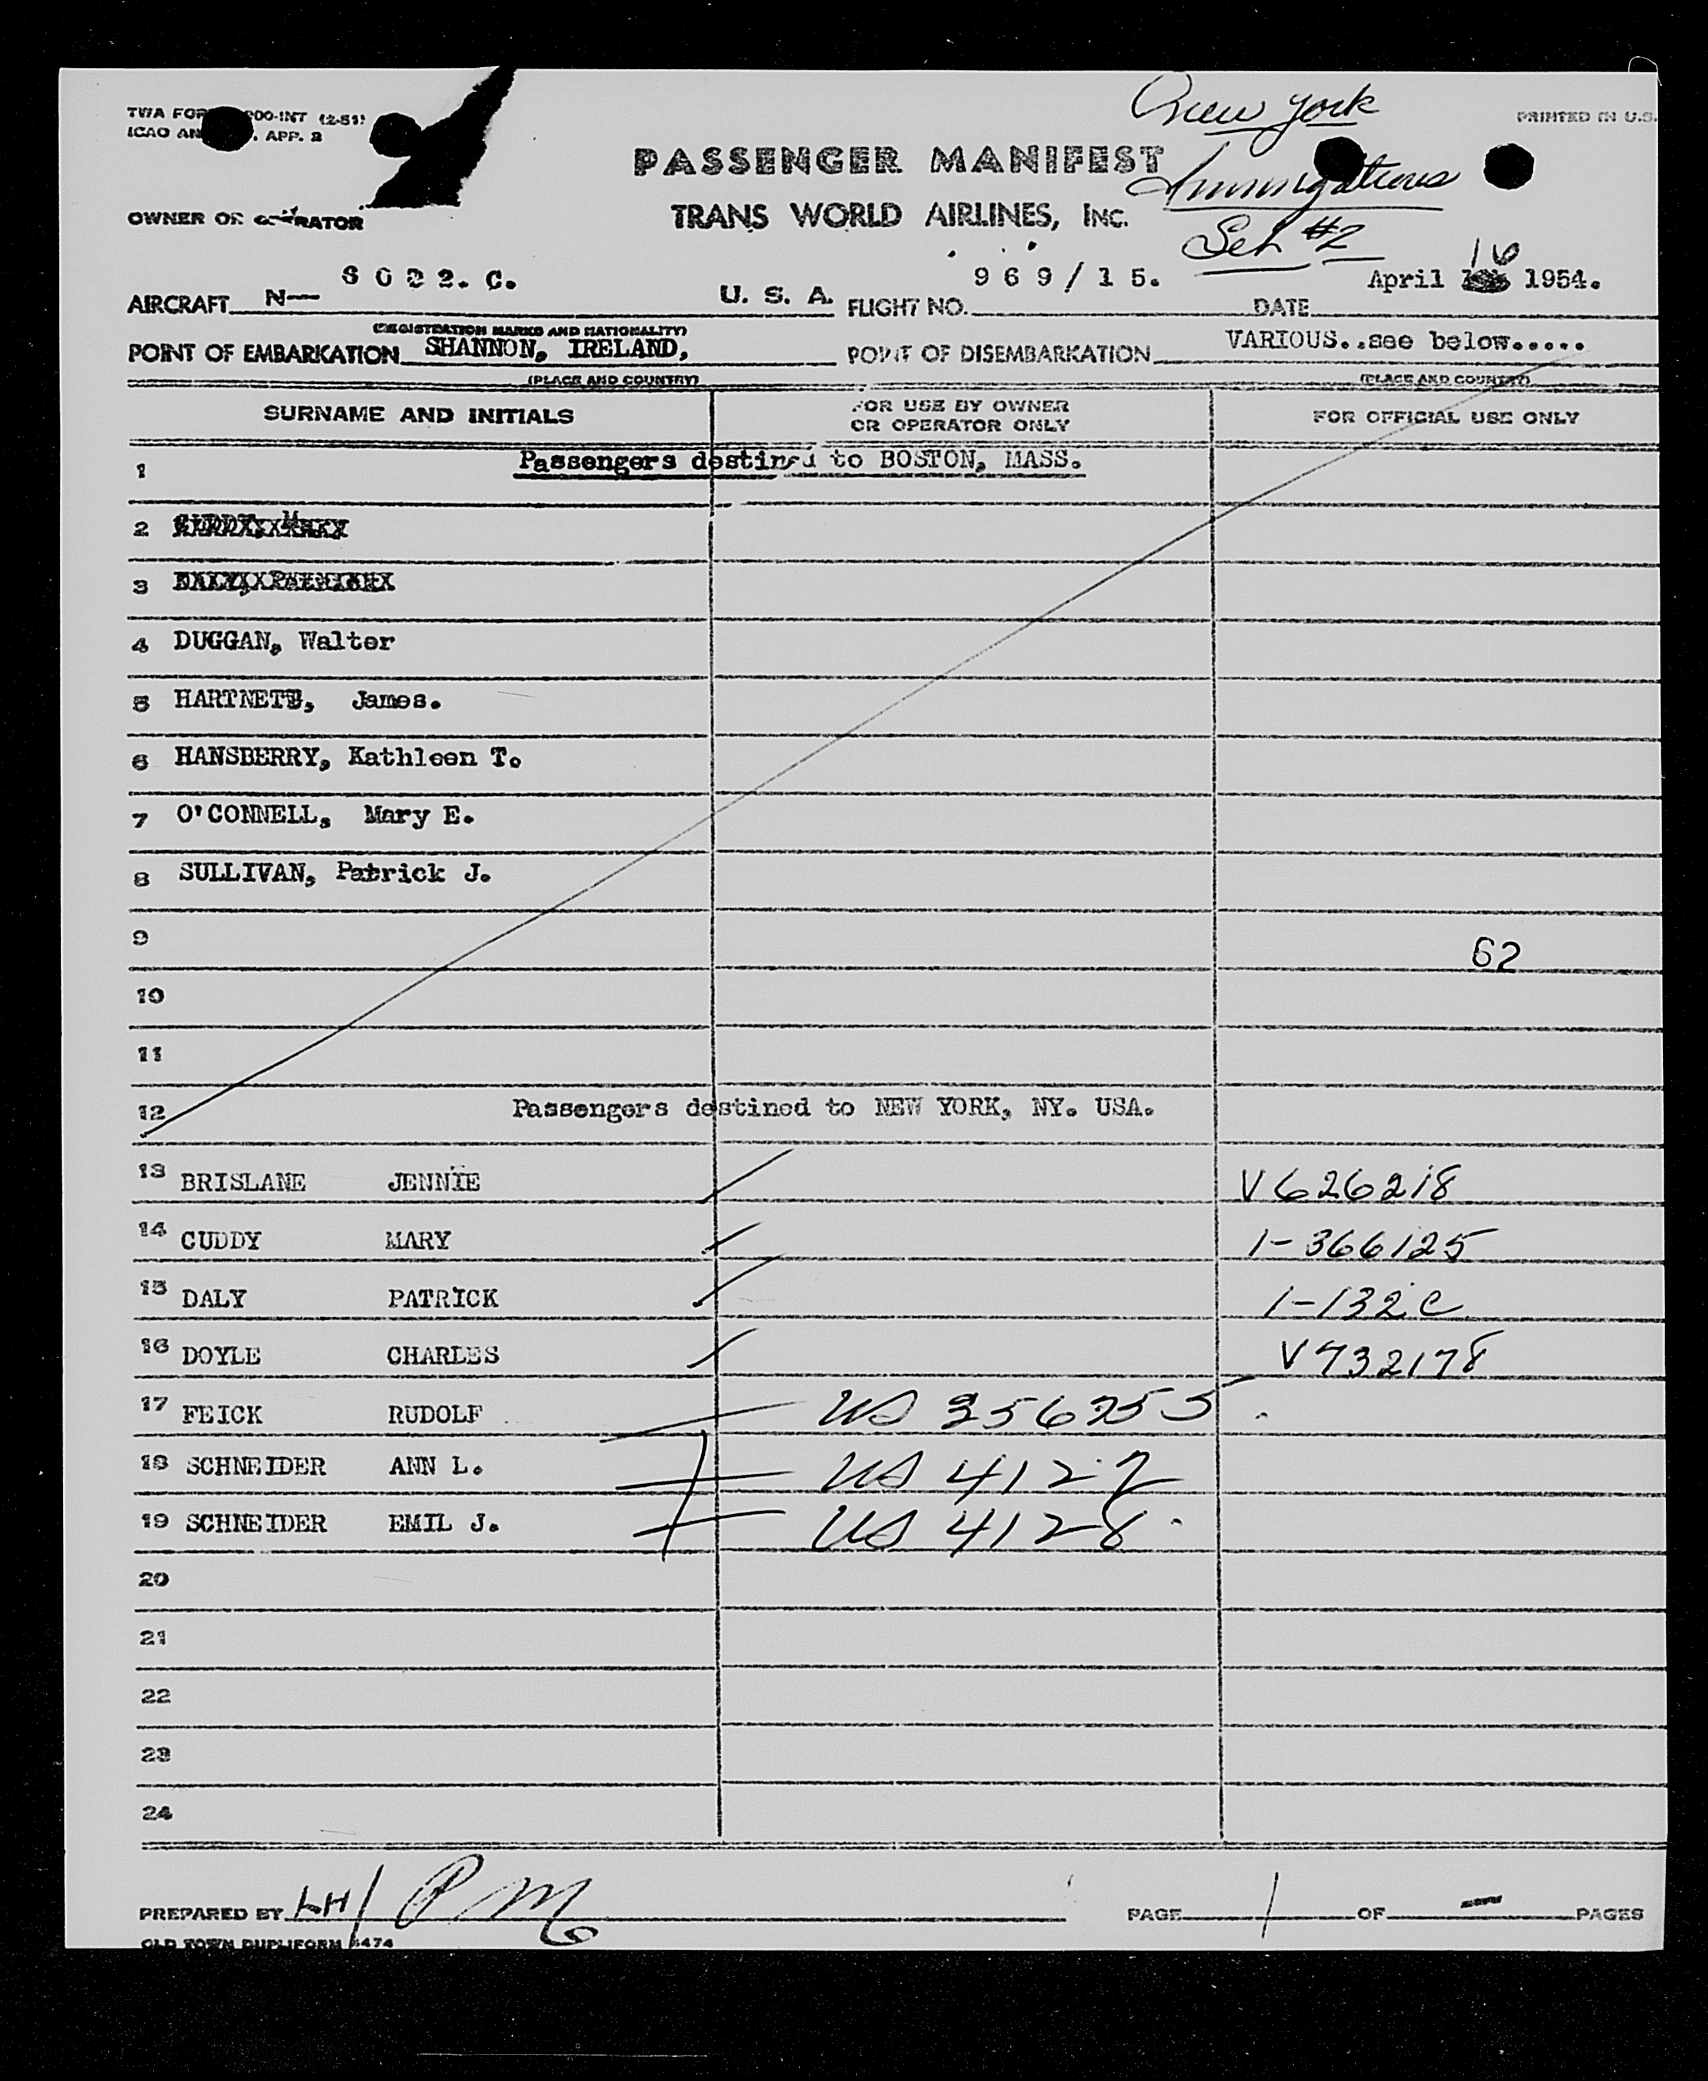 New York
TWA FOR 00-INT (2-51)
ICAO AN . APP. 2
PRINTED IN U.S.
PASSENGER MANIFEST
Immigrations
TRANS WORLD AIRLINES, INC.
OWNER OR OPERATOR
Set #2
AIRCRAFT N— 6022.C. U. S. A. FLIGHT NO. 969/15. DATE April 16 1954.
(REGISTRATION MARKS AND NATIONALITY)
POINT OF EMBARKATION SHANNON, IRELAND, POINT OF DISEMBARKATION VARIOUS..see below.....
(PLACE AND COUNTRY) (PLACE AND COUNTRY)
SURNAME AND INITIALS FOR USE BY OWNER OR OPERATOR ONLY FOR OFFICIAL USE ONLY
1 Passengers destined to BOSTON, MASS.
2
3
4 DUGGAN, Walter
5 HARTNETT, James.
6 HANSBERRY, Kathleen T.
7 O'CONNELL, Mary E.
8 SULLIVAN, Patrick J.
9 62
10
11
12 Passengers destined to NEW YORK, NY. USA.
13 BRISLANE JENNIE V626218
14 CUDDY MARY 1-366125
15 DALY PATRICK 1-132 C
16 DOYLE CHARLES V732178
17 FEICK RUDOLF US
18 SCHNEIDER ANN L. US 4127
19 SCHNEIDER EMIL J. US 4128
20
21
22
23
24
PREPARED BY LH/ PM PAGE 1 OF — PAGES
OLD TOWN DUPLIFORM 474